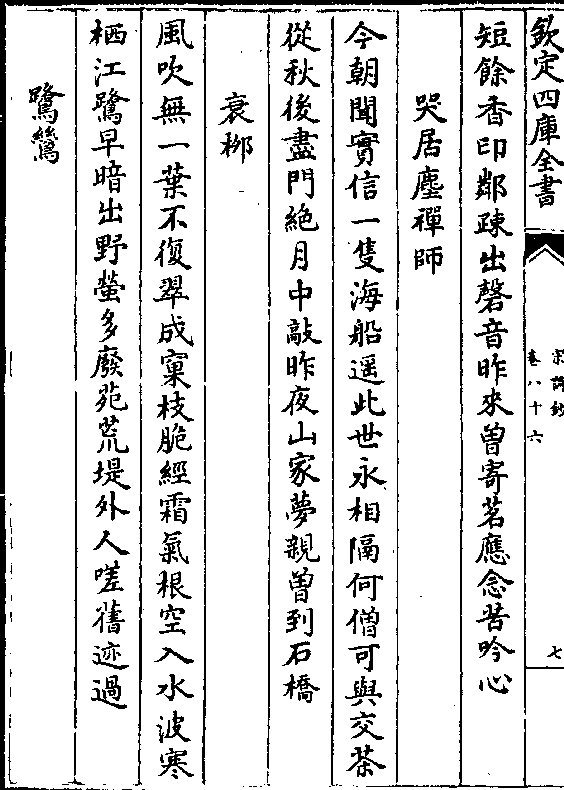 欽定四庫全書
宋詩鈔
卷八十六
七
短餘香印鄰疎出磬音昨來曽寄茗應念苦吟心
哭居塵禪師
今朝聞實信一隻海船遥此世永相隔何僧可與交茶
從秋後盡門絶月中敲昨夜山家夢親曽到石橋
衰栁
風吹無一葉不復翠成窠枝脆經霜氣根空入水波寒
栖江鷺早暗出野螢多廢苑荒堤外人嗟舊迹過
鷺鷥